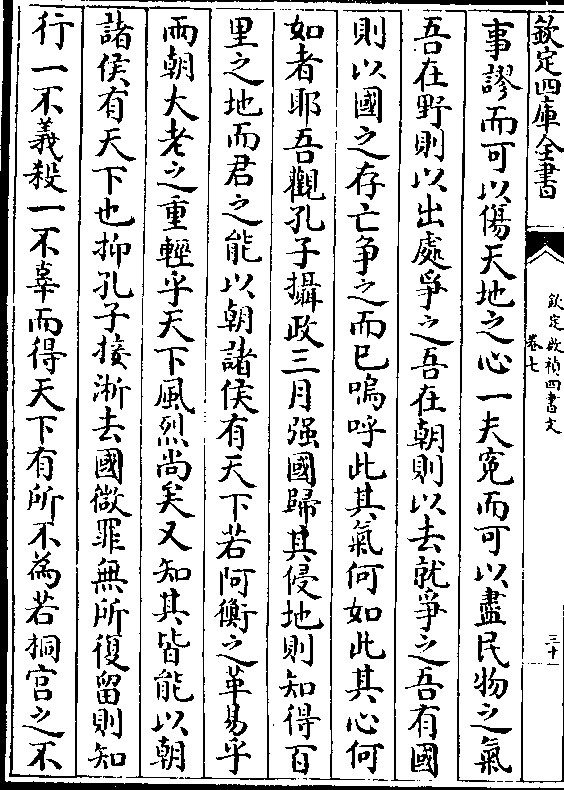 欽定四庫全書
欽定啟禎四書文
卷七
三十一
事謬而可以傷天地之心一夫寃而可以盡民物之氣
吾在野則以出處爭之吾在朝則以去就爭之吾有國
則以國之存亡争之而已嗚呼此其氣何如此其心何
如者耶吾觀孔子攝政三月强國歸其侵地則知得百
里之地而君之能以朝諸侯有天下若阿衡之革易乎
兩朝大老之重輕乎天下風烈尚矣又知其皆能以朝
諸侯有天下也抑孔子接淅去國微罪無所復留則知
行一不義殺一不辜而得天下有所不為若桐宫之不